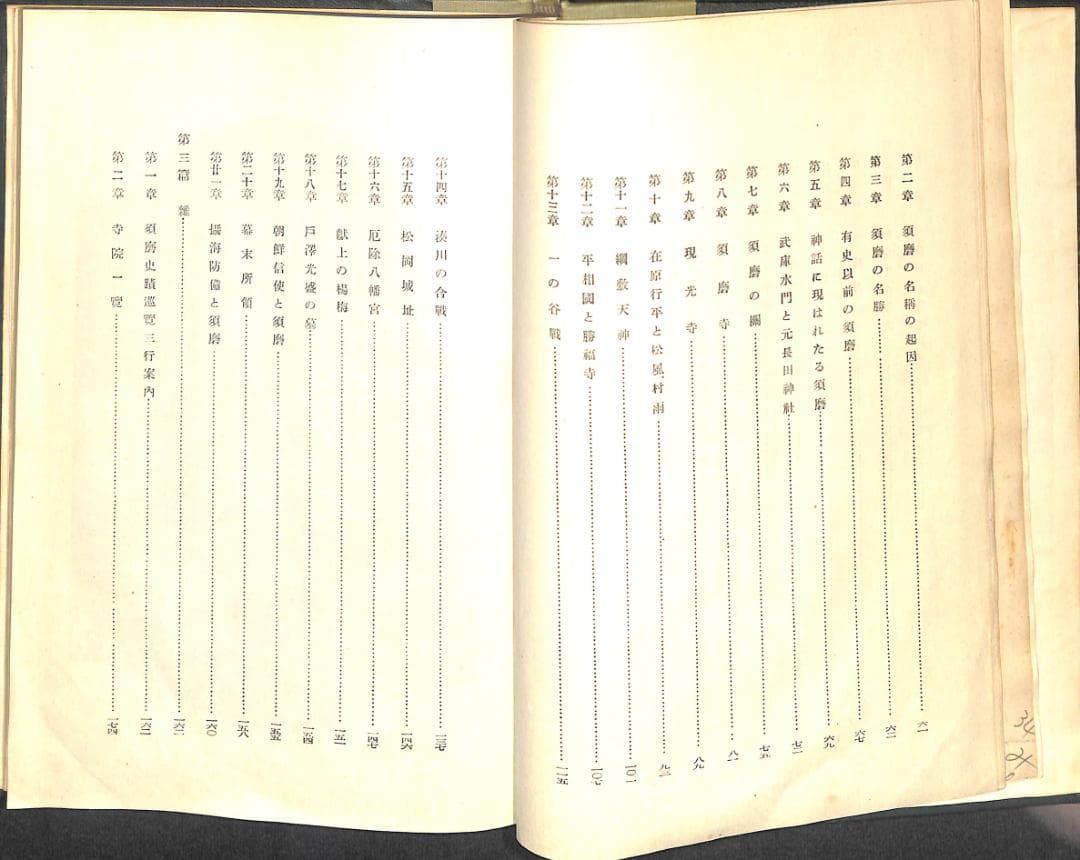 第二章 須磨の名稱の起因 六一
第三章 須磨の名勝 六二
第四章 有史以前の須磨 六七
第五章 神話に現はれたる須磨 六九
第六章 武庫水門と元長田神社 七二
第七章 須磨の關 七五
第八章 須磨寺 八一
第九章 現光寺 八九
第十章 在原行平と松風村雨 九三
第十一章 綱敷天神 一〇一
第十二章 平相國と勝福寺 一〇七
第十三章 一の谷戰 一一五
第十四章 湊川の合戰 一三七
第十五章 松岡城址 一四六
第十六章 厄除八幡宮 一四七
第十七章 獻上の楊梅 一五一
第十八章 戸澤光盛の墓 一五四
第十九章 朝鮮信使と須磨 一五五
第二十章 幕末所領 一五八
第廿一章 攝海防備と須磨 一六〇
第三篇 雜 一六二
第一章 須磨史蹟巡覽三行案內 一六二
第二章 寺院一覽 一七四
34